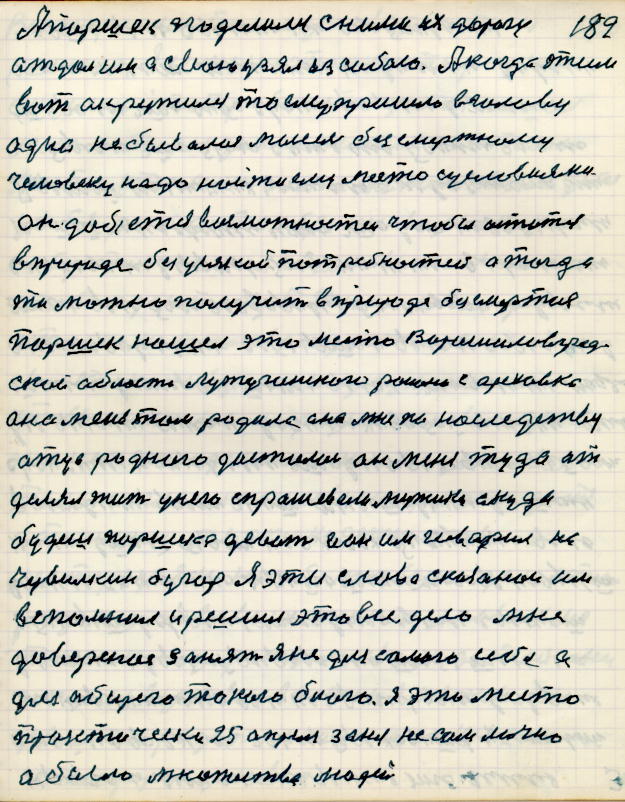 Апаршек поделили с ними их дорогу 189
атдал им а свою узял из сабою. А когда этим
вот акружили то ему пришло в голову
адна небывалая мысля безсмертному
человеку надо найти ему место су словиями
он добется возможностей чтобы астатся
в природе без усякой потребностей а тогда
то можно получит в природе безсмертия
паршек нашел это место Ворошиловград-
ской области Лутугинского района с ареховка
она меня там родила она мне по наследству
атцу родного дасталась он меня туда ат
делял жит у него спрашевали мужики а куда
будиш паршека девать и он им гаварил на
чувилкин бугор Я эти слова сказаное им
вспомнил и решил это все дело мне
довереное занят я не для самого себя а
для абщего такого блага. я это место
практически 25 апреля занял не сам лично
а было множества людей